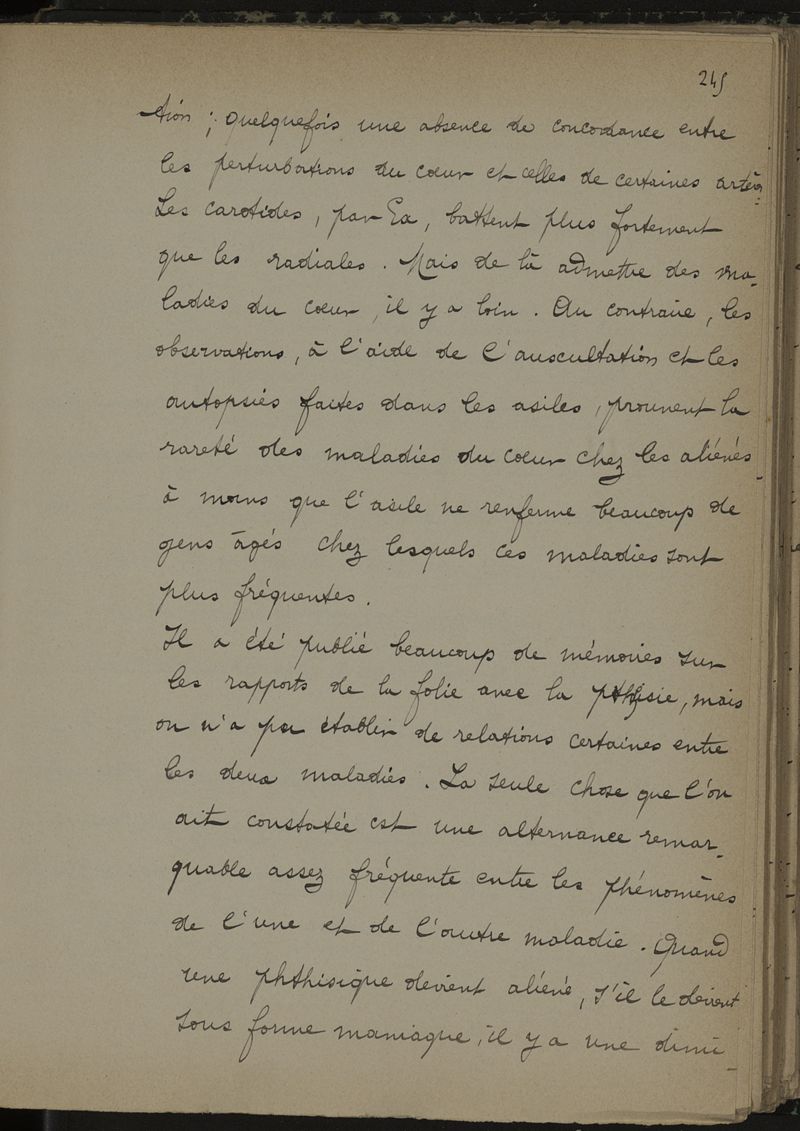 245
-tion ; quelquefois une absence de concordance entre
les perturbations du cœur et celles de certaines artères
Les carotides, par Ex, battent plus fortement
que les radiales. Mais de là admettre des ma-
ladies du cœur, il y a loin. Au contraire, les
observations, à l'aide de l'auscultation et les
autopsies faites dans les asiles, prouvent la
rareté des maladies du cœur chez les aliénés -
à moins que l'asile ne renferme beaucoup de
gens âgés chez lesquels ces maladies sont
plus fréquentes.
Il a été publié beaucoup de mémoires sur
les rapports de la folie avec la phthisie, mais
on n'a pu établir de relations certaines entre
les deux maladies. La seule chose que l'on
ait constatée est une alternance remar-
quable assez fréquente entre les phénomènes
de l'une et de l'autre maladie. Quand
une phthisique devient aliéné, s'il le devient
sous forme maniaque, il y a une dimi-